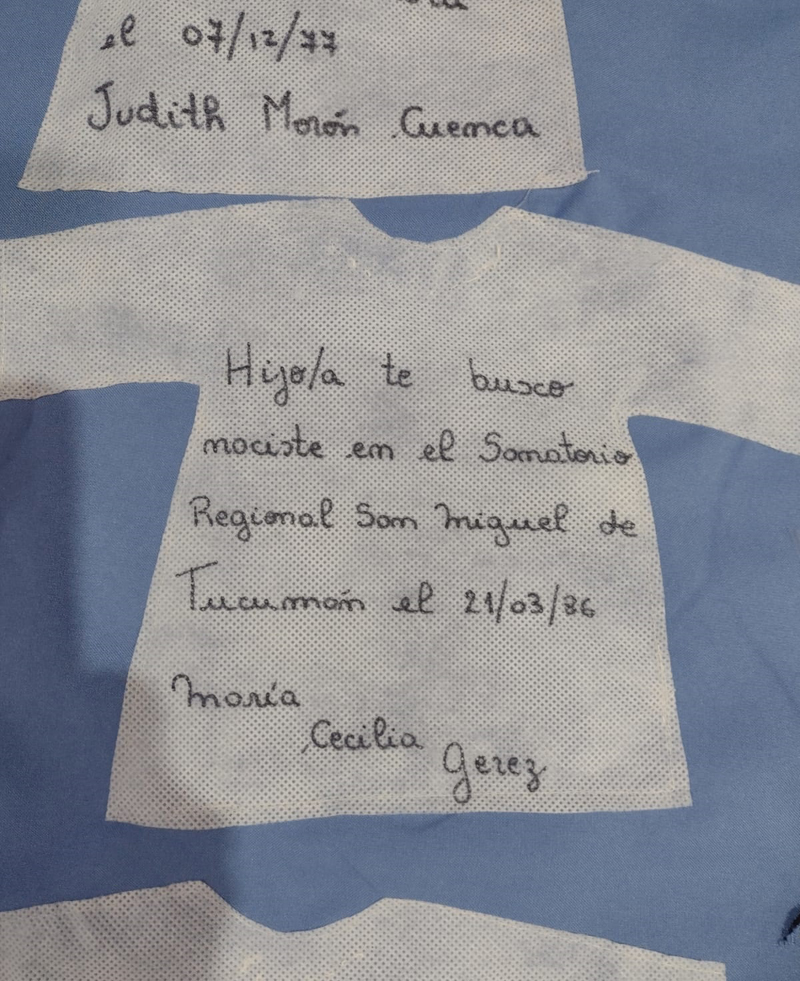 el 07/12/77
Judith Morón Cuenca
Hijo/a te busco
naciste en el Sanatorio
Regional San Miguel de
Tucumán el 21/03/86
María
Cecilia
Gerez